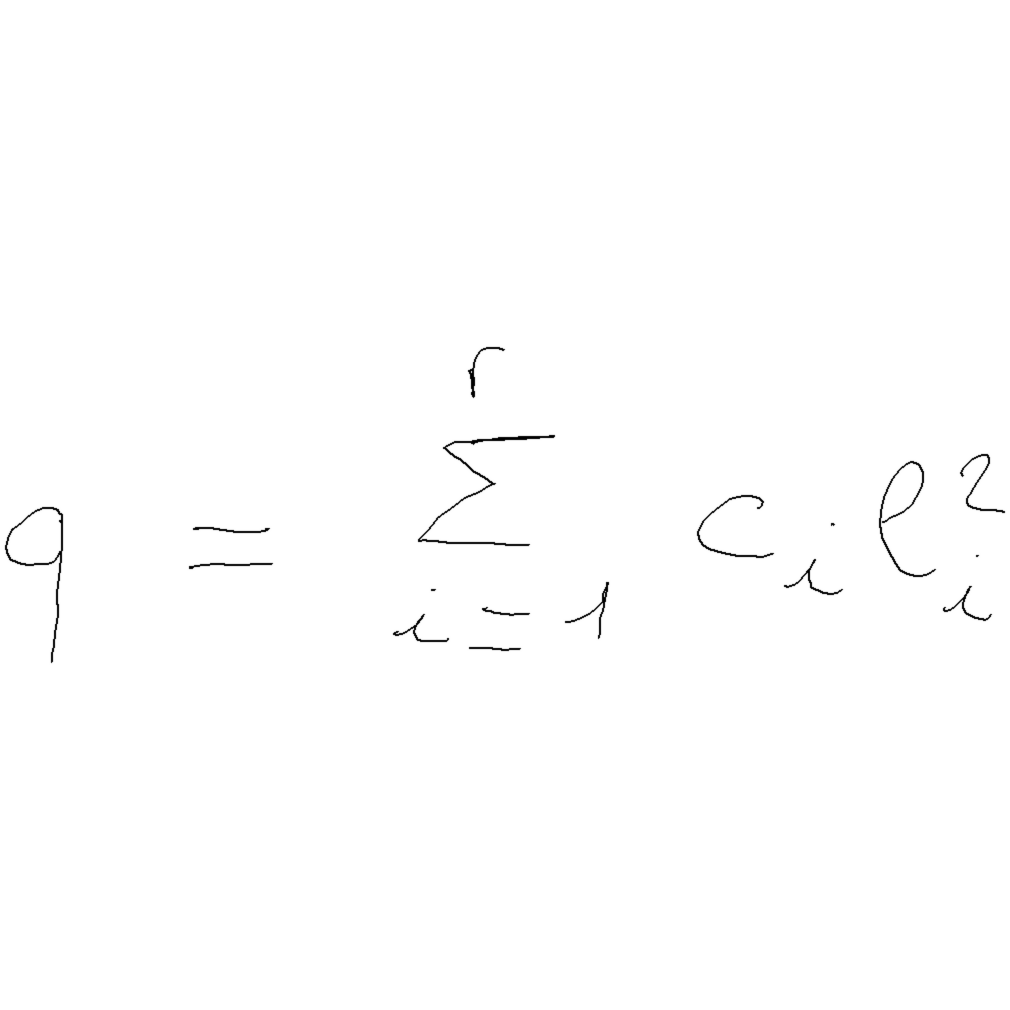 q = \sum_{i=1}^{r} c_i \ell_i^2